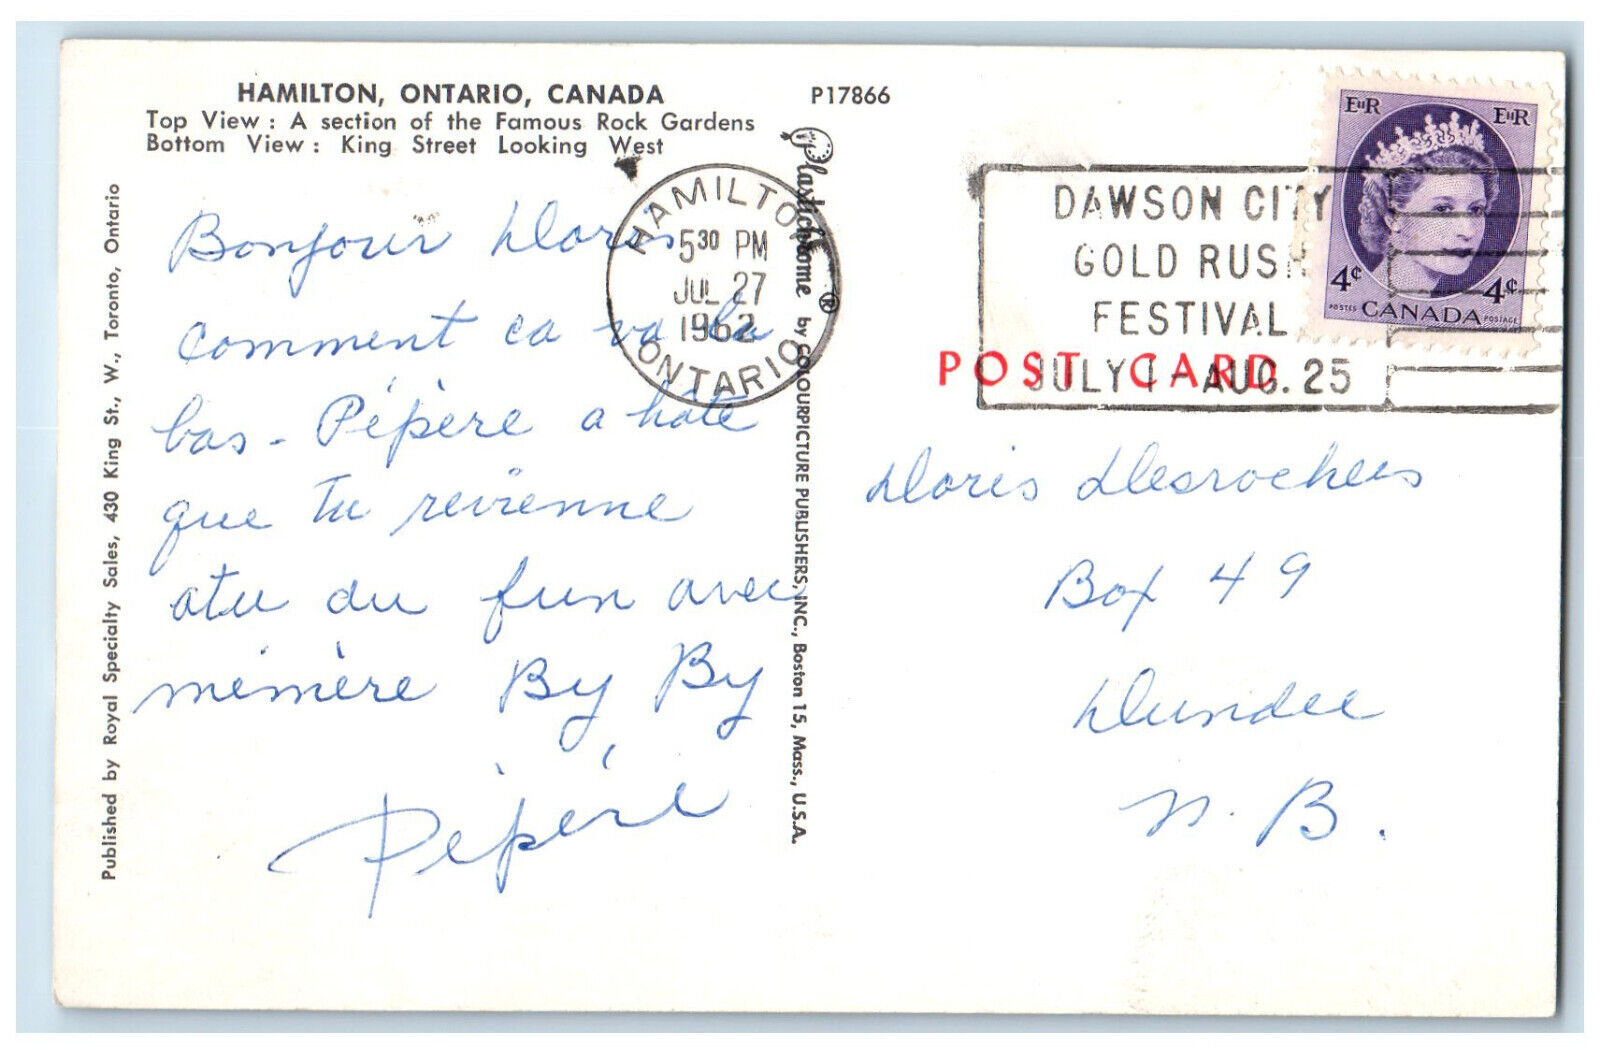 HAMILTON, ONTARIO, CANADA
Top View : A section of the Famous Rock Gardens
Bottom View : King Street Looking West
P17866
Published by Royal Specialty Sales, 430 King St., W., Toronto, Ontario
Plastichrome ® by COLOURPICTURE PUBLISHERS, INC., Boston 15, Mass., U.S.A.
HAMILTON
5 30 PM
JUL 27
1962
ONTARIO
DAWSON CITY
GOLD RUSH
FESTIVAL
JULY 1 - AUG. 25
EIIR EIIR
4¢ 4¢
POSTES CANADA POSTAGE
POST CARD
Bonjour Doris
comment ca va la
bas - Pépère a hâte
que tu revienne
atu du fun avec
mémère By By
Pépère
Doris Desrochers
Box 49
Dundee
N. B.